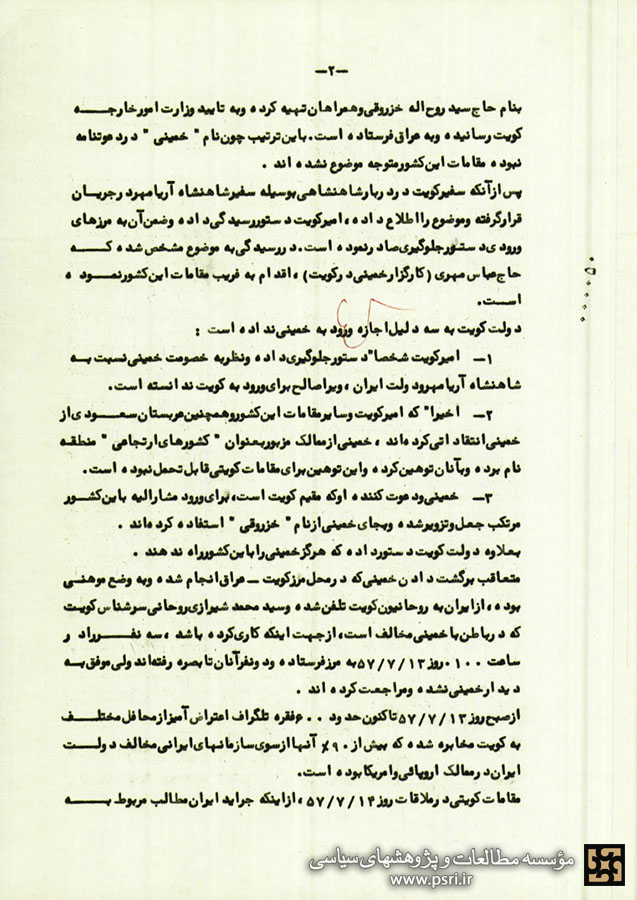 —۲—
بنام حاج سید روح اله خزروقی وهمراهان تهیه کرده وبه تایید وزارت امورخارجه
کویت رسانیده وبه عراق فرستاده است. باین ترتیب چون نام " خمینی " در دعوتنامه
نبوده مقامات این کشور متوجه موضوع نشده اند .
پس ازآنکه سفیرکویت در دربارشاهنشاهی بوسیله سفیرشاهنشاه آریامهر درجریان
قرارگرفته وموضوع رااطلاع داده، امیرکویت دستوررسیدگی داده وضمن آن به مرزهای
ورودی دستورجلوگیری صادرنموده است. دررسیدگی به موضوع مشخص شده که
حاج عباس مهری (کارگزارخمینی درکویت) ، اقدام به فریب مقامات این کشورنموده
است.
دولت کویت به سه دلیل اجازه ورود به خمینی نداده است :
۱ــ امیرکویت شخصا" دستورجلوگیری داده ونظربه خصومت خمینی نسبت به
شاهنشاه آریامهرودولت ایران ، ویراصالح برای ورود به کویت ندانسته است.
۲ــ اخیرا" که امیرکویت وسایرمقامات این کشوروهمچنین عربستان سعودی از
خمینی انتقاداتی کرده اند ، خمینی ازممالک مزبوربعنوان " کشورهای ارتجاعی " منطقه
نام برده وبآنان توهین کرده واین توهین برای مقامات کویتی قابل تحمل نبوده است.
۳ــ خمینی ودعوت کننده اوکه مقیم کویت است، برای ورود مشارالیه باین کشور
مرتکب جعل وتزویرشده وبجای خمینی ازنام " خزروقی " استفاده کرده اند .
بعلاوه دولت کویت دستورداده که هرگزخمینی راباین کشورراه ندهند .
متعاقب برگشت دادن خمینی که درمحل مرزکویت ــ عراق انجام شده وبه وضع موهنی
بوده، ازایران به روحانیون کویت تلفن شده وسید محمد شیرازی روحانی سرشناس کویت
که درباطن با خمینی مخالف است، ازجهت اینکه کاری کرده باشد ، سه نفررا در
ساعت ۰۱۰۰ روز ۵۷/۷/۱۳ به مرزفرستاده ودونفرآنان تا بصره رفته اند ولی موفق به
دیدارخمینی نشده ومراجعت کرده اند .
ازصبح روز ۵۷/۷/۱۳ تاکنون حدود ۶۰۰ فقره تلگراف اعتراض آمیزازمحافل مختلف
به کویت مخابره شده که بیش از ۹۰٪ آنها ازسوی سازمانهای ایرانی مخالف دولت
ایران درممالک اروپائی وامریکا بوده است.
مقامات کویتی درملاقات روز ۵۷/۷/۱۴ ، ازاینکه جراید ایران مطالب مربوط به
مؤسسه مطالعات و پژوهشهای سیاسی
www.psri.ir